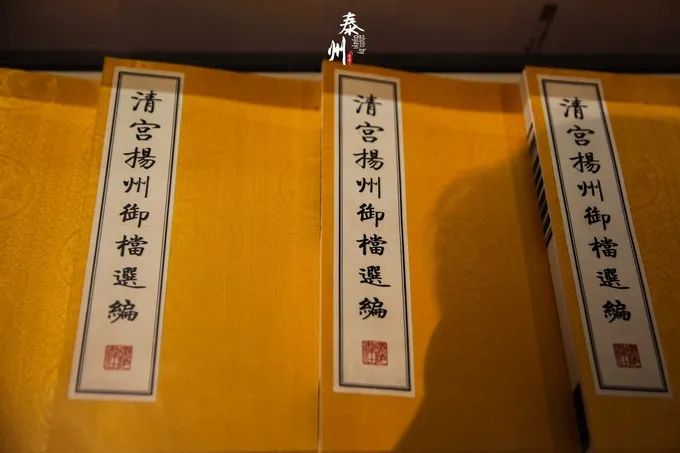 泰州
清宫揚州御檔選編
清宫揚州御檔選編
清宫揚州御檔選編